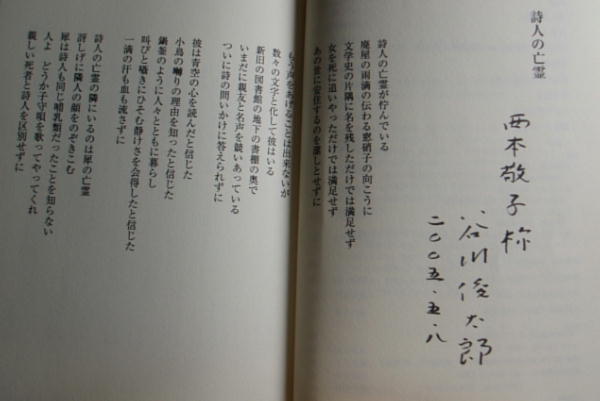 詩人の亡霊
西本敬子様
谷川俊太郎
二〇〇五・五・八
詩人の亡霊が佇んでいる
廃屋の雨滴の伝わる窓硝子の向こうに
文学史の片隅に名を残しただけでは満足せず
女を死に追いやっただけでは満足せず
あの世に安住するのを潔しとせずに
もう声をあげることは出来ないが
数々の文字と化して彼はいる
新旧の図書館の地下の書棚の奥で
いまだに親友と名声を競いあっている
ついに詩の問いかけに答えられずに
彼は青空の心を読んだと信じた
小鳥の囀りの理由を知ったと信じた
鍋釜のように人々とともに暮らし
叫びと囁きにひそむ静けさを会得したと信じた
一滴の汗も血も流さずに
詩人の亡霊の隣にいるのは犀の亡霊
訝しげに隣人の顔をのぞきこむ
犀は詩人も同じ哺乳類だったことを知らない
人よ どうか子守唄を歌ってやってくれ
親しい死者と詩人を区別せずに